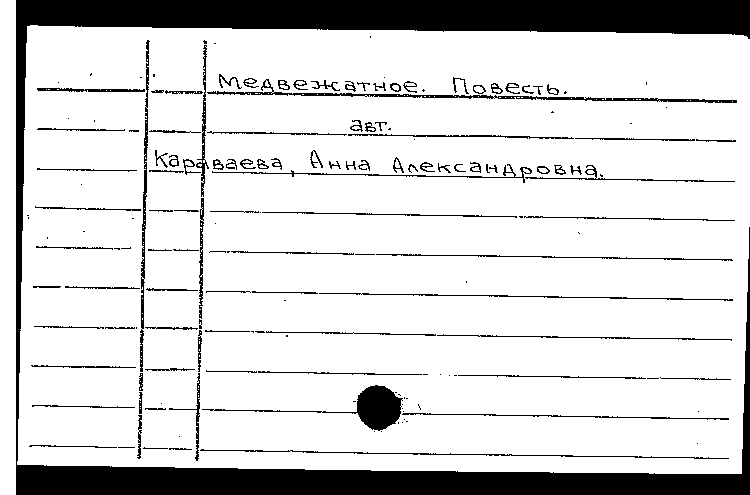 Медвежатное. Повесть.
авт.
Караваева, Анна Александровна.